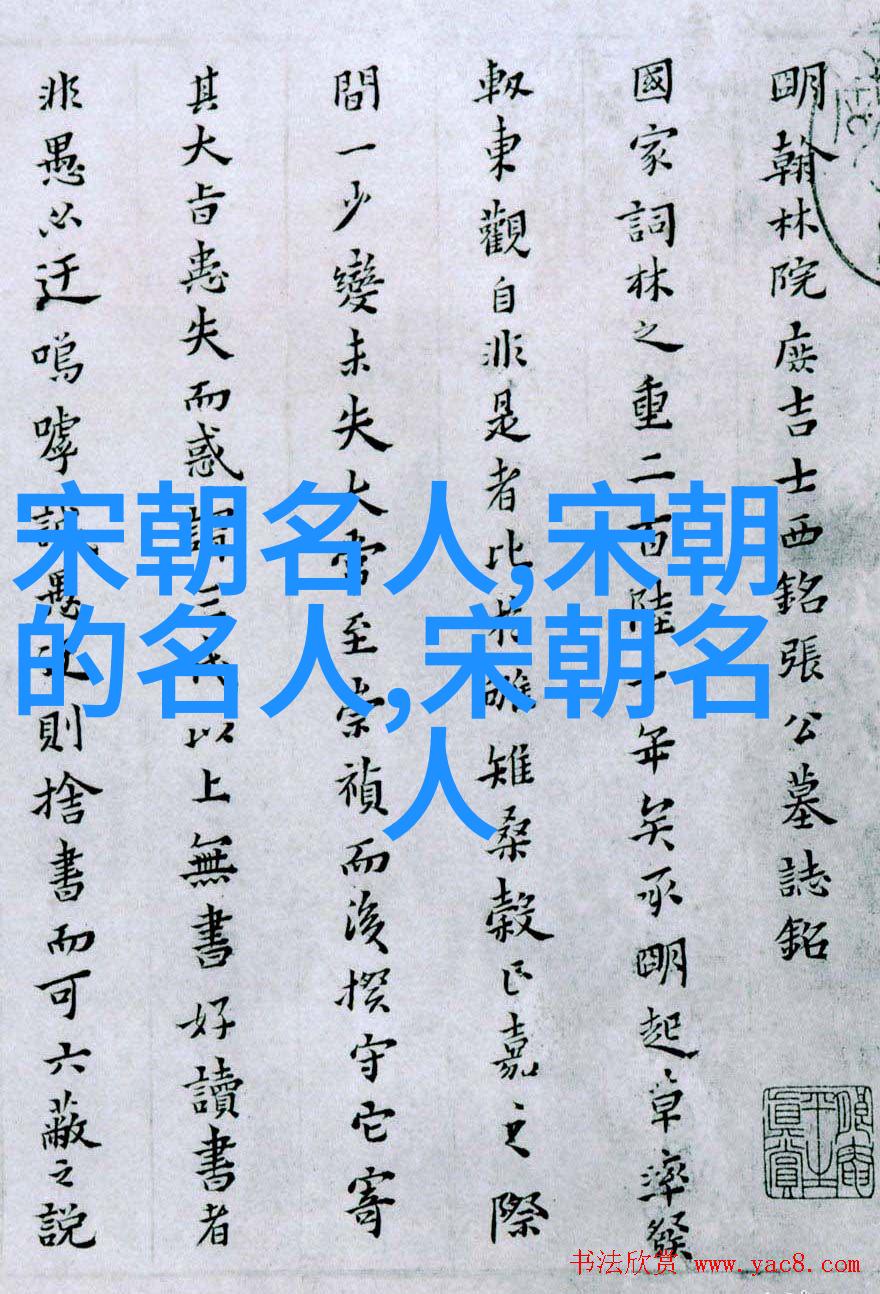 明翰林院庶吉士西銘張公墓誌銘
國家詞林之重二百陸十年矣承明起草發
軔東觀自非是者比於雊雉桑穀正嘉之際
間一少變未失大常至崇禎而後揆守它寄
其大旨患失而惑以上無書好讀書者
非愚必迂嗚嘑誠愚迂則捨書而可六蔽之説
宋朝名人,宋朝
的名人,宋朝名
人
书法欣赏 www.yac8.com